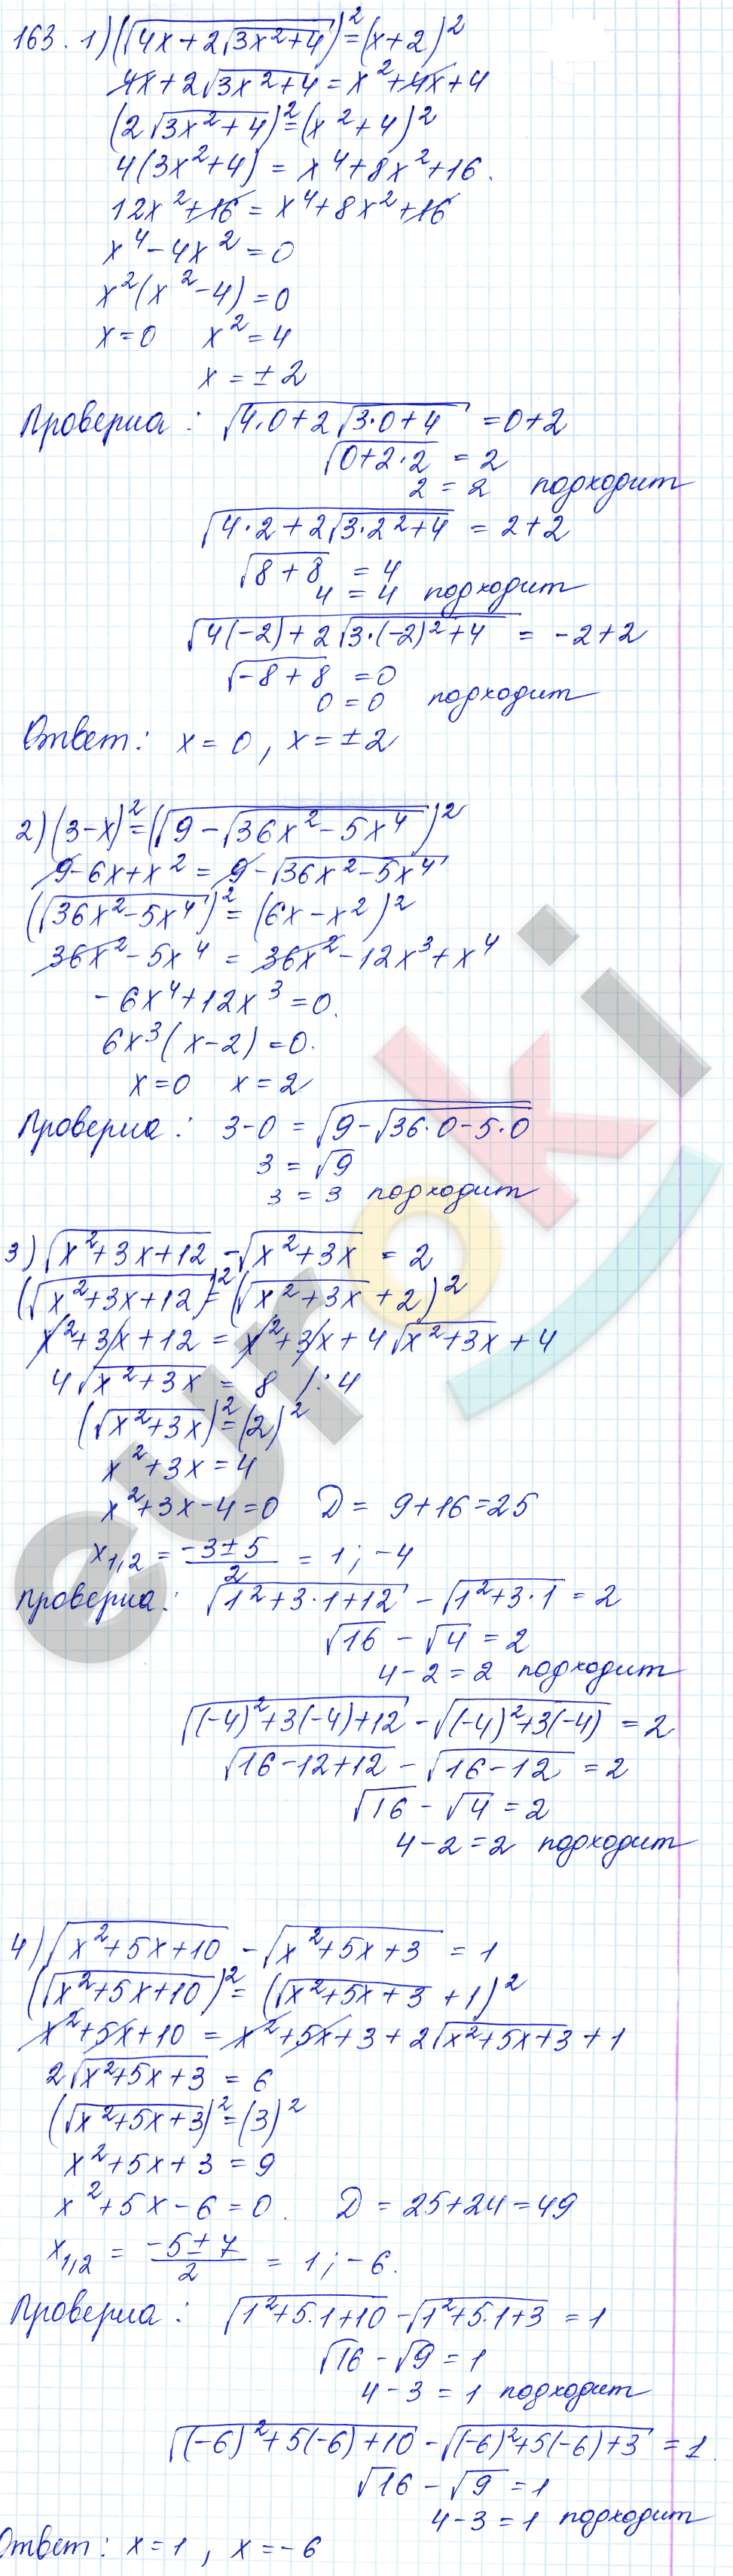 163. 1) (√(4x+2√(3x²+4)))² = (x+2)²
4x+2√(3x²+4) = x²+4x+4
(2√(3x²+4))² = (x²+4)²
4(3x²+4) = x⁴+8x²+16.
12x²+16 = x⁴+8x²+16
x⁴-4x² = 0
x²(x²-4) = 0
x=0 x²=4
x = ±2
Проверка: √(4·0+2√(3·0+4)) = 0+2
√(0+2·2) = 2
2 = 2 подходит
√(4·2+2√(3·2²+4)) = 2+2
√(8+8) = 4
4 = 4 подходит
√(4(-2)+2√(3·(-2)²+4)) = -2+2
√(-8+8) = 0
0 = 0 подходит
Ответ: x = 0, x = ±2
2) (3-x)² = (√(9-√(36x²-5x⁴)))²
9-6x+x² = 9-√(36x²-5x⁴)
(√(36x²-5x⁴))² = (6x-x²)²
36x²-5x⁴ = 36x²-12x³+x⁴
-6x⁴+12x³ = 0.
6x³(x-2) = 0.
x=0 x=2
Проверка: 3-0 = √(9-√(36·0-5·0))
3 = √9
3 = 3 подходит
3) √(x²+3x+12) - √(x²+3x) = 2
(√(x²+3x+12))² = (√(x²+3x)+2)²
x²+3x+12 = x²+3x+4√(x²+3x)+4
4√(x²+3x) = 8 /:4
(√(x²+3x))² = (2)²
x²+3x = 4
x²+3x-4=0 D = 9+16=25
x₁,₂ = (-3±5)/2 = 1; -4
Проверка: √(1²+3·1+12) - √(1²+3·1) = 2
√16 - √4 = 2
4-2 = 2 подходит
√((-4)²+3(-4)+12) - √((-4)²+3(-4)) = 2
√(16-12+12) - √(16-12) = 2
√16 - √4 = 2
4-2 = 2 подходит
4) √(x²+5x+10) - √(x²+5x+3) = 1
(√(x²+5x+10))² = (√(x²+5x+3)+1)²
x²+5x+10 = x²+5x+3+2√(x²+5x+3)+1
2√(x²+5x+3) = 6
(√(x²+5x+3))² = (3)²
x²+5x+3 = 9
x²+5x-6 = 0. D = 25+24=49
x₁,₂ = (-5±7)/2 = 1; -6.
Проверка: √(1²+5·1+10) - √(1²+5·1+3) = 1
√16 - √9 = 1
4-3 = 1 подходит
√((-6)²+5(-6)+10) - √((-6)²+5(-6)+3) = 1.
√16 - √9 = 1
4-3 = 1 подходит
Ответ: x=1, x=-6
euroki